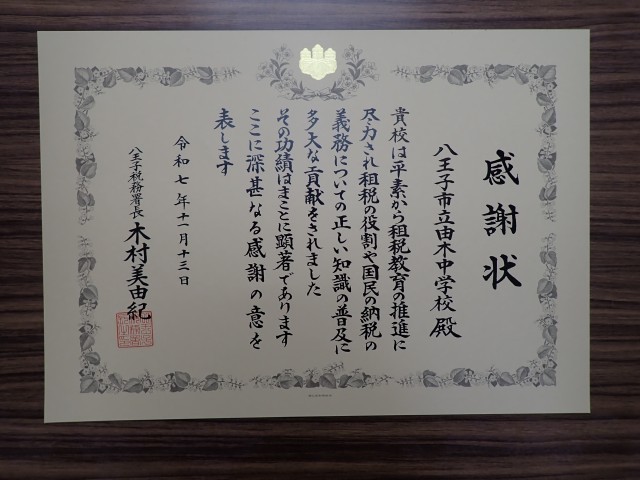 感謝状
八王子市立由木中学校 殿
貴校は平素から租税教育の推進に
尽力され租税の役割や国民の納税の
義務についての正しい知識の普及に
多大な貢献をされました
その功績はまことに顕著であります
ここに深甚なる感謝の意を
表します
令和七年十一月十三日
八王子税務署長 木村美由紀